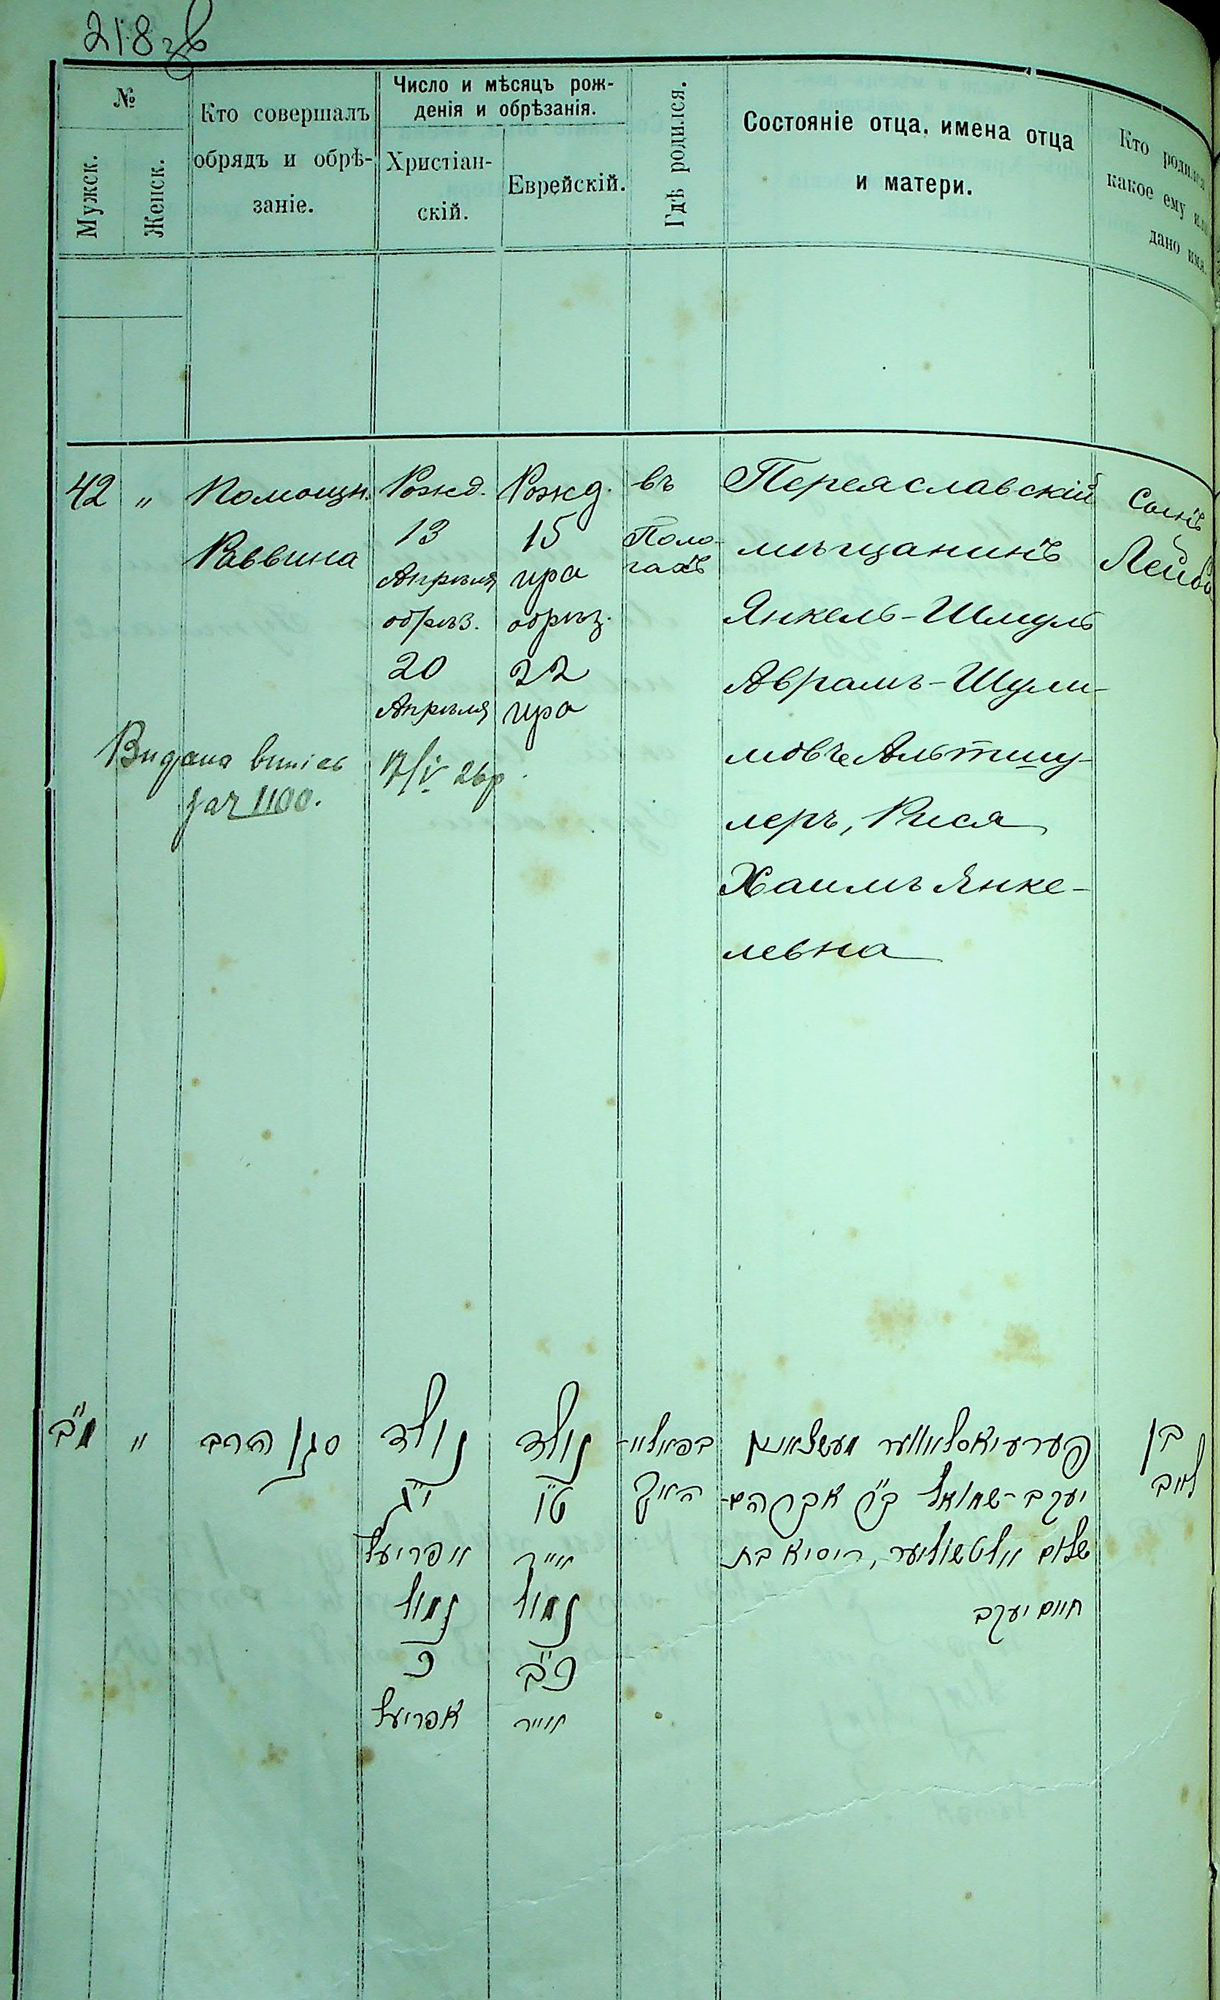 218 зв
№
Мужск.
Женск.
Кто совершалъ
обрядъ и обрѣ-
заніе.
Число и мѣсяцъ рож-
денія и обрѣзанія.
Христіан-
скій.
Еврейскій.
Гдѣ родился.
Состояніе отца, имена отца
и матери.
Кто родился
какое ему или
дано имя.
42 "
Помощн.
Раввина
Рожд.
13
Апрѣля
обрѣз.
20
Апрѣля
Рожд.
15
ира
обрѣз.
22
ира
въ
Поло-
гахъ
Переяславскій
мѣщанинъ
Янкель-Шмуль
Аврамъ-Шули-
мовъ Альтшу-
леръ, Рися
Хаимъ Янке-
левна
Сынъ
Лейба
Видана
1100.
17/V 26р.
מ"ב "
סגן הרב
נולד
י"ג
אפריעל
נמול
כ
אפריעל
נולד
ט"ו
אייר
נמול
כ"ב
אייר
פערעיאסלאווער מעשצאנין
יעקב-שמואל ב"ר אברהם-
שלום אלטשולער, ריסיא בת
חיים יעקב
בן
לייב